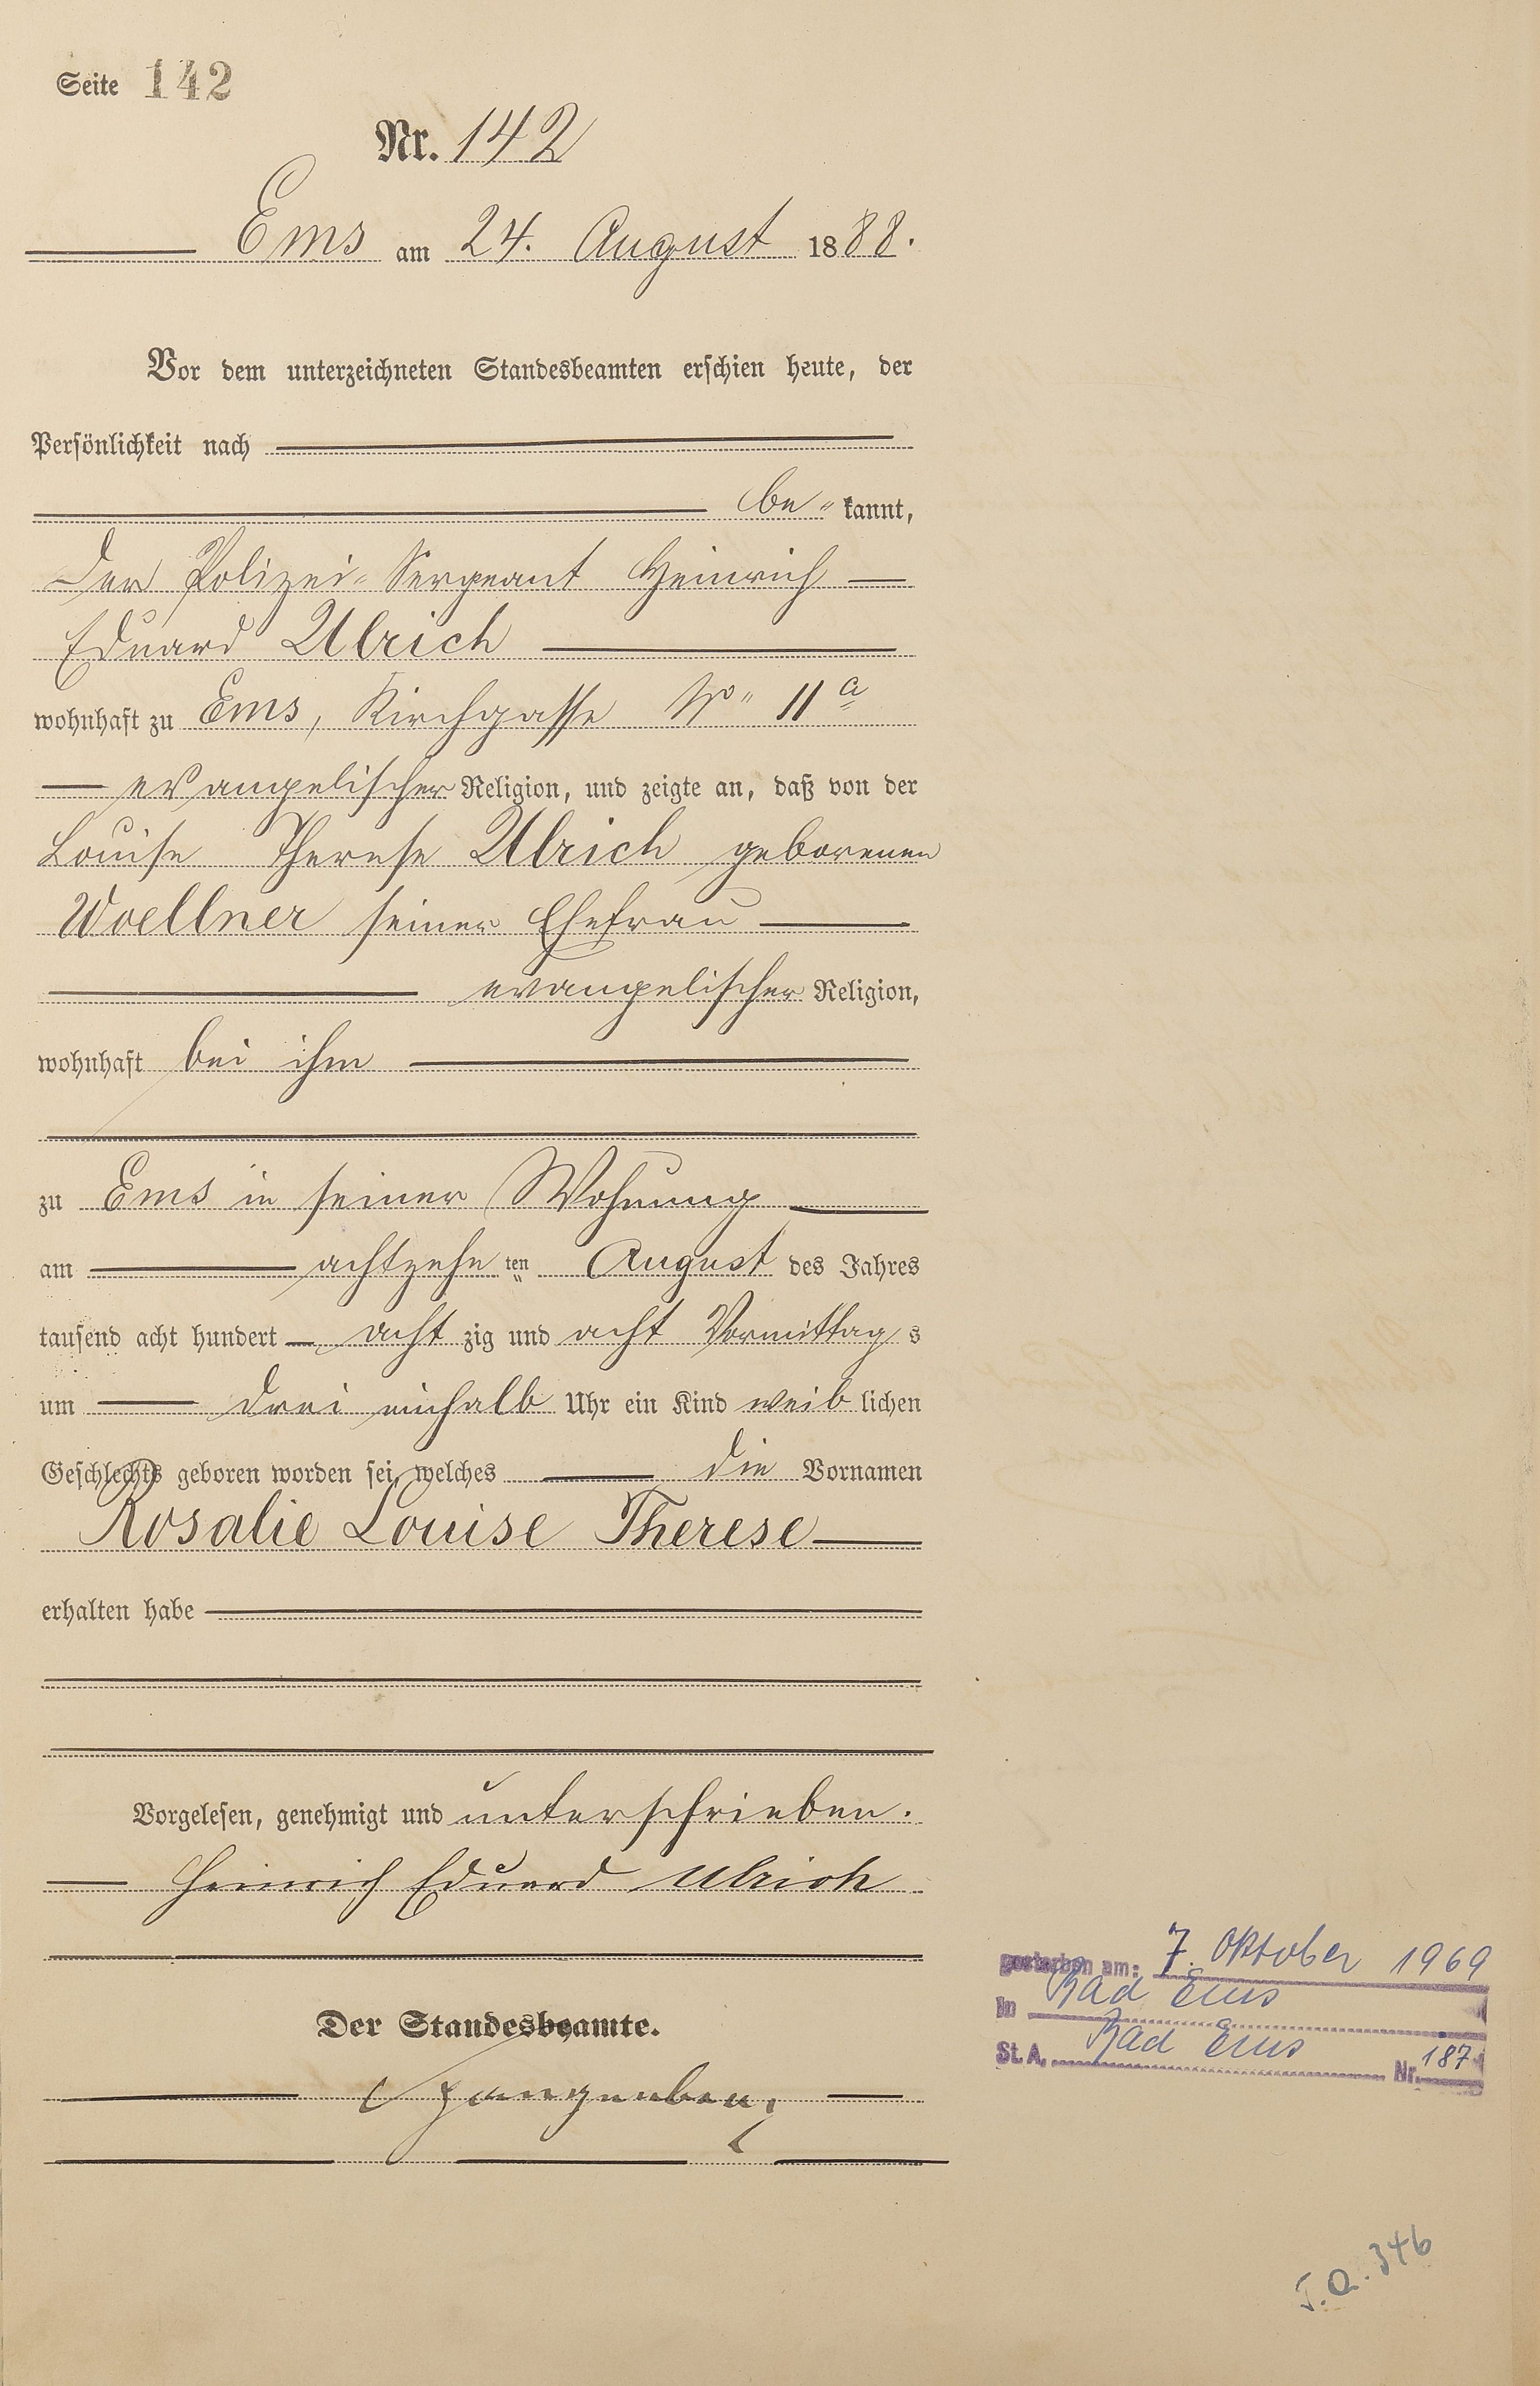 Seite 142
Nr. 142
Ems am 24. August 1888.
Vor dem unterzeichneten Standesbeamten erschien heute, der
Persönlichkeit nach
be- kannt,
der Polizei-Sergeant Heinrich
Eduard Ulrich
wohnhaft zu Ems, Kirchgasse No 11a
evangelischer Religion, und zeigte an, daß von der
Louise Therese Ulrich geborenen
Woellner seiner Ehefrau
evangelischer Religion,
wohnhaft bei ihm
zu Ems in seiner Wohnung
am achtzehn ten August des Jahres
tausend acht hundert acht zig und acht Vormittag s
um drei einhalb Uhr ein Kind weib lichen
Geschlechts geboren worden sei, welches die Vornamen
Rosalie Louise Therese
erhalten habe
Vorgelesen, genehmigt und unterschrieben.
Heinrich Eduard Ulrich
Der Standesbeamte.
gestorben am: 7. Oktober 1969
in Bad Ems
St. A. Bad Ems Nr. 187
J.Q. 346